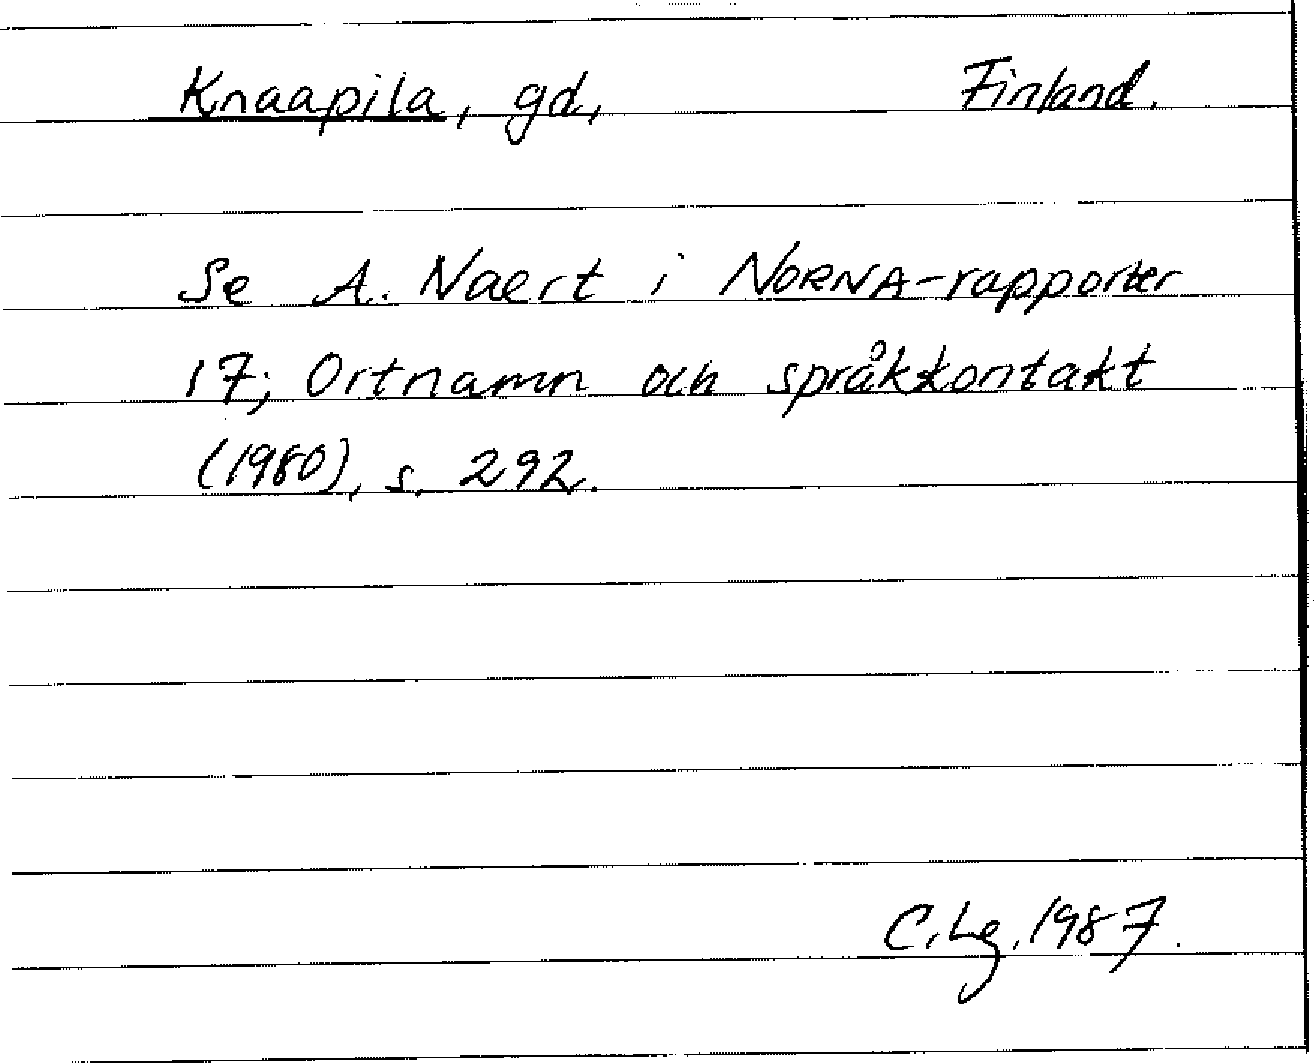 Knaapila, gd, Finland.
Se A. Naert i NORNA-rapporter
17; Ortnamn och språkkontakt
(1980), s. 292.
C. Lg. 1987.